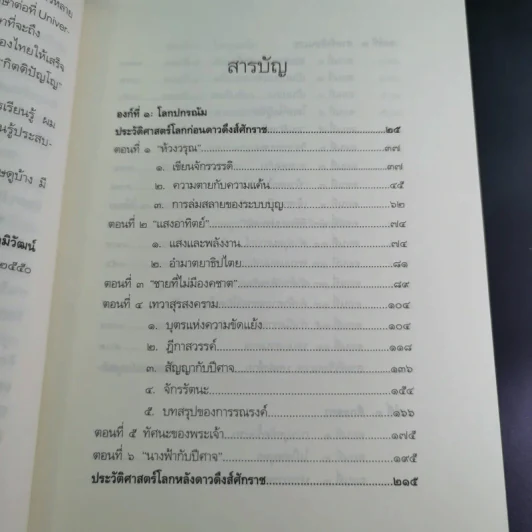 ษาต่อที่ Univer-
าที่จะถึง
องไทยให้เสร็จ
"กิตติปัญโญ"
ารเรียนรู้ ผม
นรู้ประสบ-
ษดูบ้าง มี
มิวัฒน์
๒๕๕๐
สารบัญ
องก์ที่ ๑: โลกปกรณัม
ประวัติศาสตร์โลกก่อนดาวดึงส์ศักราช ๒๕
ตอนที่ ๑ "ห้วงวรุณ" ๓๗
๑. เซียนจักรวรรดิ ๓๗
๒. ความตายกับความแค้น ๔๕
๓. การล่มสลายของระบบบุญ ๖๒
ตอนที่ ๒ "แสงอาทิตย์" ๗๔
๑. แสงและพลังงาน ๗๔
๒. อำมาตยาธิปไตย ๘๑
ตอนที่ ๓ "ชายที่ไม่มีองคชาต" ๘๙
ตอนที่ ๔ เทวาสุรสงคราม ๑๐๔
๑. บุตรแห่งความขัดแย้ง ๑๐๔
๒. ฎีกาสวรรค์ ๑๑๘
๓. สัญญากับปีศาจ ๑๓๖
๔. จักรรัตนะ ๑๕๔
๕. บทสรุปของการรณรงค์ ๑๖๖
ตอนที่ ๕ ทัศนะของพระเจ้า ๑๗๕
ตอนที่ ๖ "นางฟ้ากับปีศาจ" ๑๙๕
ประวัติศาสตร์โลกหลังดาวดึงส์ศักราช ๒๑๕